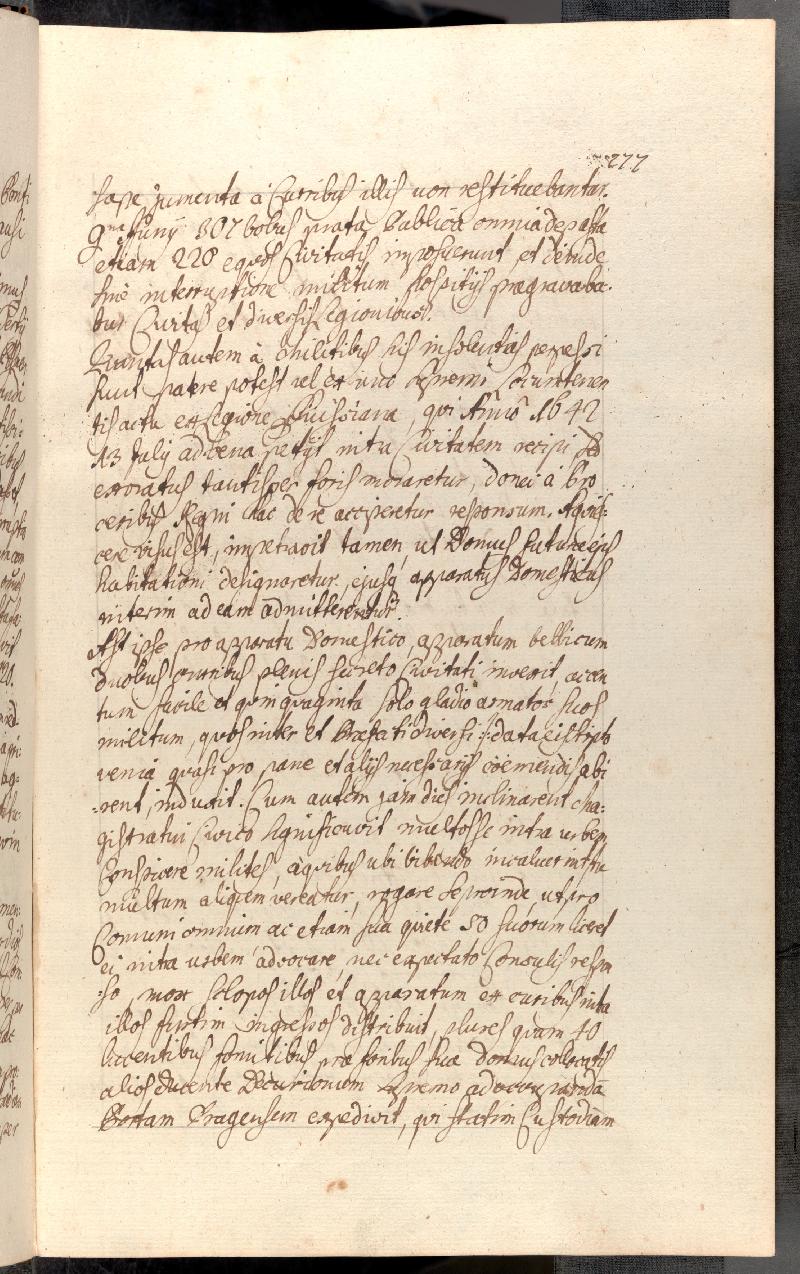 277
sæpe jumenta à Curribus illis non restituebantur.
9na Junij 307 bobus prata Publica omnia depasta
etiam 228 equos Civitatis imposuerunt et deinde
sine interruptione militum hospitijs prægravaba-
tur Civitas et diversis Legionibus.
Quantas autem à Militibus his insolentias perpessi
sunt patere potest vel ex uno Locumtenen
tis actu ex Legione, qui Anno 1642
13 Julij ad bena petijt intra Civitatem recipi sed
exoratus tantisper foris moraretur, donec à Pro
ceribus Regni hac de re acciperetur responsum. Aquies-
cere visus est, impetravit tamen, ut Domus futura ejus
habitationi designaretur, ejusq apparatus Domesticus
interim ad eam admitteretur.
Ast ipse pro apparatu Domestico, apparatum bellicum
Duobus curribus plenis secreto Civitati invexit, cen
tum facile et quinquaginta solo gladio armatos suos
militum, quos inter et Præfati diversi : data istis
venia quasi pro pane et alijs necessarijs coemendis abi
rent, induxit. Cum autem jam dies inclinaret Ma-
gistratui Civico significavit multos se intra urbem
Conspicere milites, à quibus ubi bibendo incaluerint tu
multum aliquem vereatur, rogare se proinde, ut pro
Comuni omnium ac etiam sua quiete 50 suorum liceret
ei intra urbem advocare, nec expectato Consulis respon
so, mox sclopos illos et apparatum ex curribus inter
illos furtim ingressos distribuit, plures quam 40
luccentibus fomitibus præ foribus suæ domus collocatis
alios ducente Decurionum supremo ad occupandam
Portam Pragensem expedivit, qui statim Custodiam